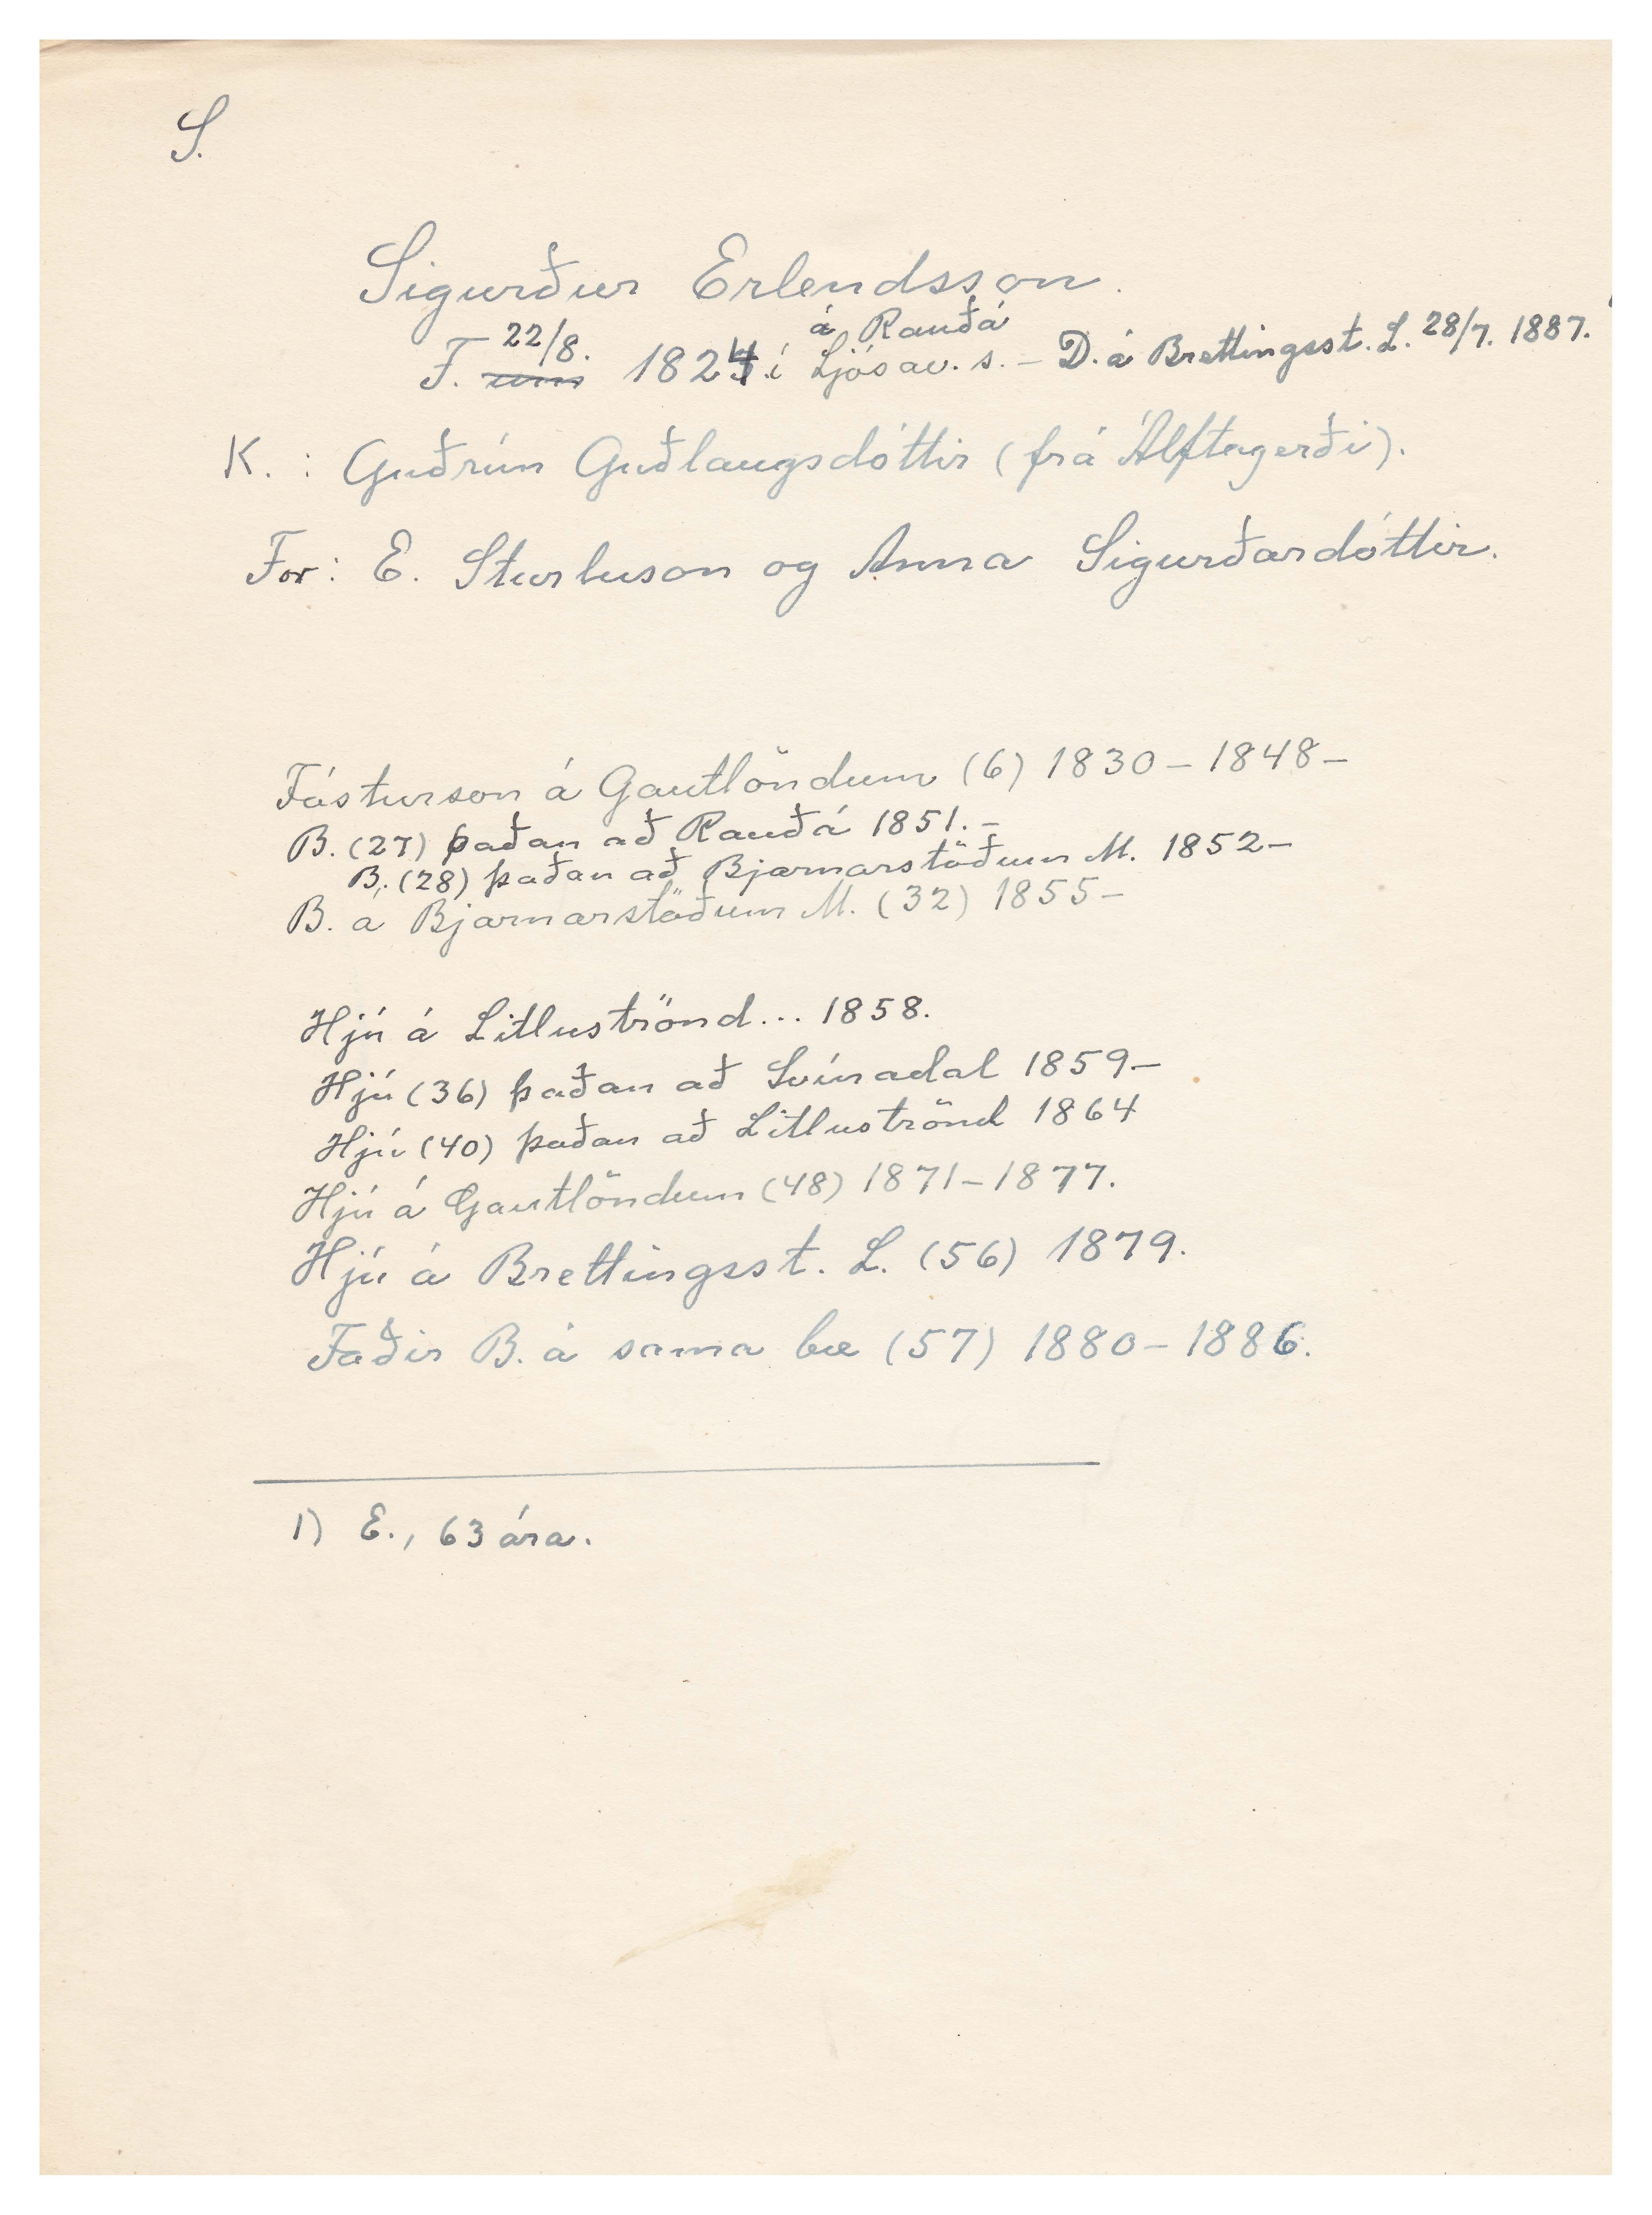 S.
Sigurður Erlendsson.
á Rauðá
F. um 22/8. 1824 í Ljósav. s. – D. á Brettingsst. L. 28/7. 1887.
K. : Guðrún Guðlaugsdóttir (frá Álftagerði).
For: E. Sturluson og Anna Sigurðardóttir.
Fósturson á Gautlöndum (6) 1830 – 1848 –
B. (27) þaðan að Rauðá 1851. –
B. (28) þaðan að Bjarnarstöðum M. 1852 –
B. á Bjarnarstöðum M. (32) 1855 –
Hjú á Litluströnd... 1858.
Hjú (36) þaðan að Svínadal 1859 –
Hjú (40) þaðan að Litluströnd 1864
Hjú á Gautlöndum (48) 1871 – 1877.
Hjú á Brettingsst. L. (56) 1879.
Faðir B. á sama bæ (57) 1880 – 1886.
1) E., 63 ára.